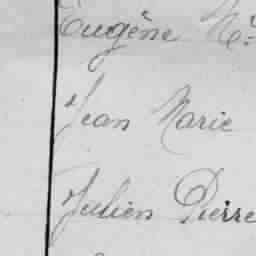 Eugène
Jean Marie
Julien Pierre